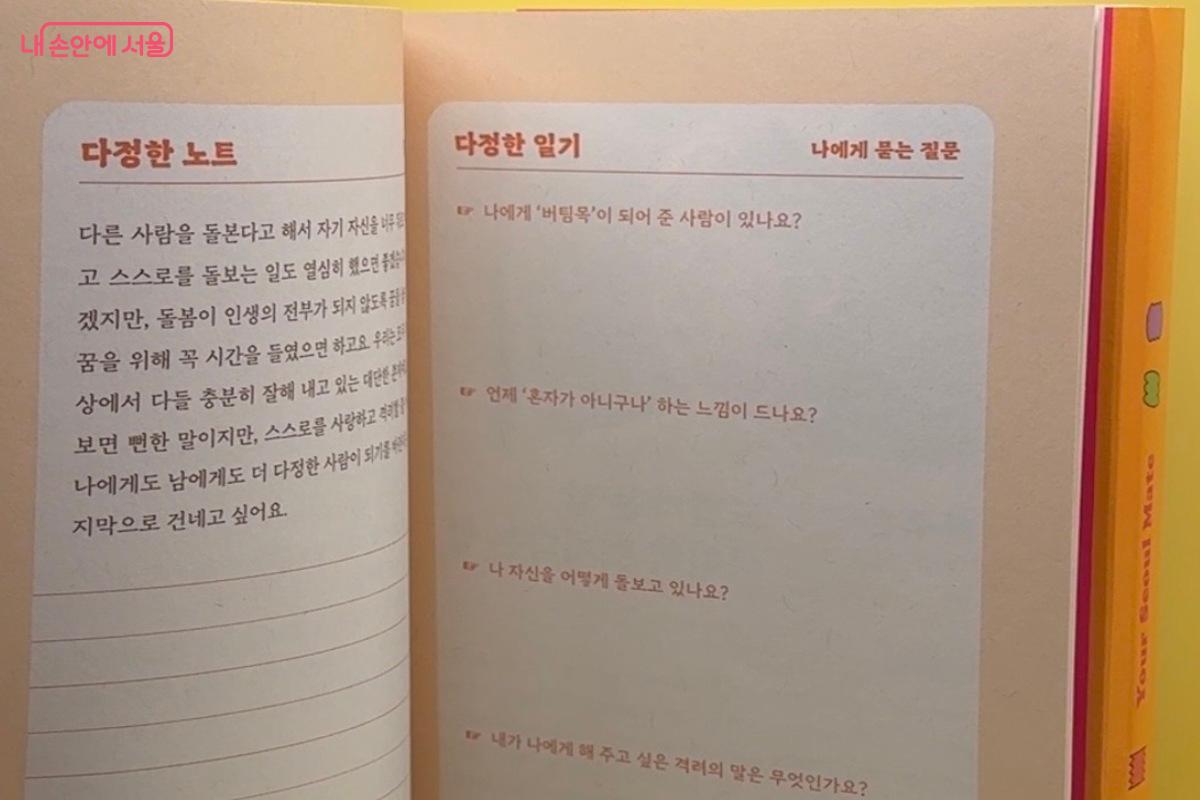 내 손안에 서울
다정한 노트
다른 사람을 돌본다고 해서 자기 자신을 너무
고 스스로를 돌보는 일도 열심히 했으면
겠지만, 돌봄이 인생의 전부가 되지 않도록
꿈을 위해 꼭 시간을 들였으면 하고요. 우리는
상에서 다들 충분히 잘해 내고 있는 대단한
보면 뻔한 말이지만, 스스로를 사랑하고
나에게도 남에게도 더 다정한 사람이 되기를
지막으로 건네고 싶어요.
다정한 일기 나에게 묻는 질문
☞ 나에게 ‘버팀목’이 되어 준 사람이 있나요?
☞ 언제 ‘혼자가 아니구나’ 하는 느낌이 드나요?
☞ 나 자신을 어떻게 돌보고 있나요?
☞ 내가 나에게 해 주고 싶은 격려의 말은 무엇인가요?
Your Soul Mate